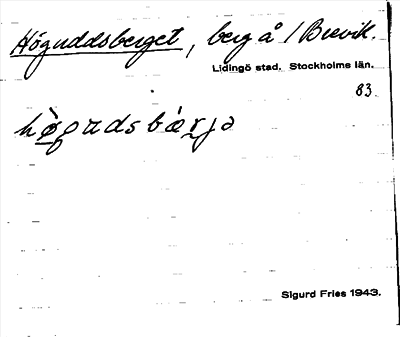 Höguddsberget, berg å / Brevik.
Lidingö stad. Stockholms län.
83
Sigurd Fries 1943.